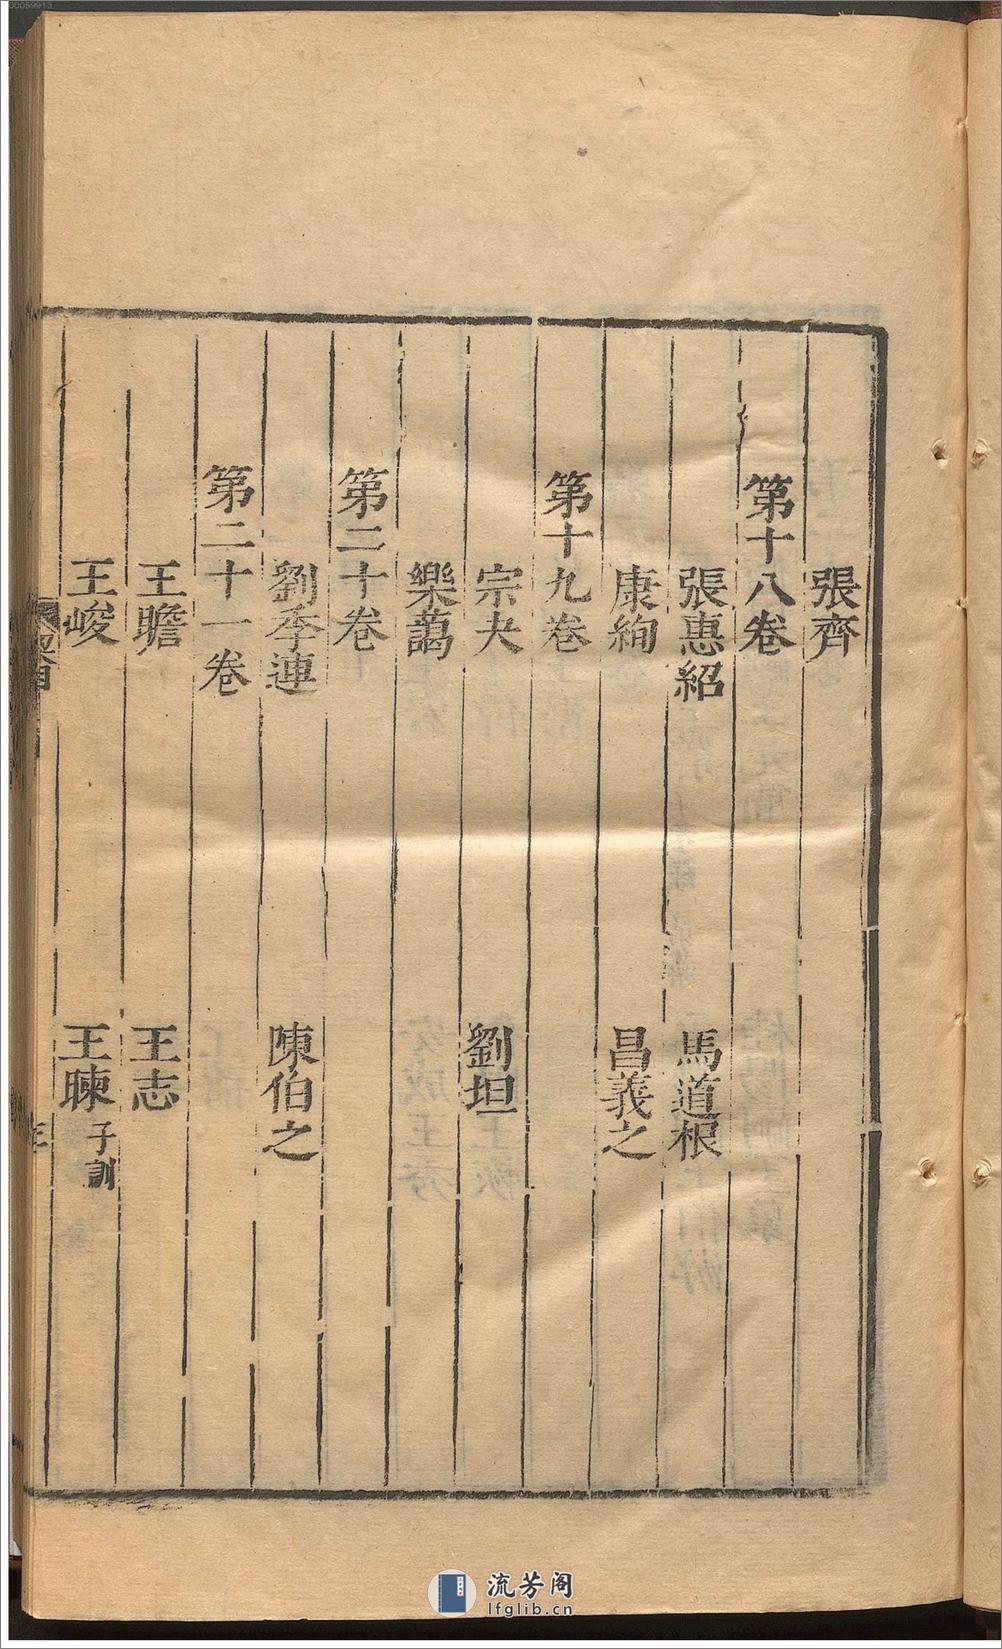 張齊
第十八卷
張惠紹　馬道根
康絢　昌義之
第十九卷
宗夬　劉坦
樂藹
第二十卷
劉季連　陳伯之
第二十一卷
王瞻　王志
王峻　王暕 子訓
流芳阁
lfglib.cn
00059913